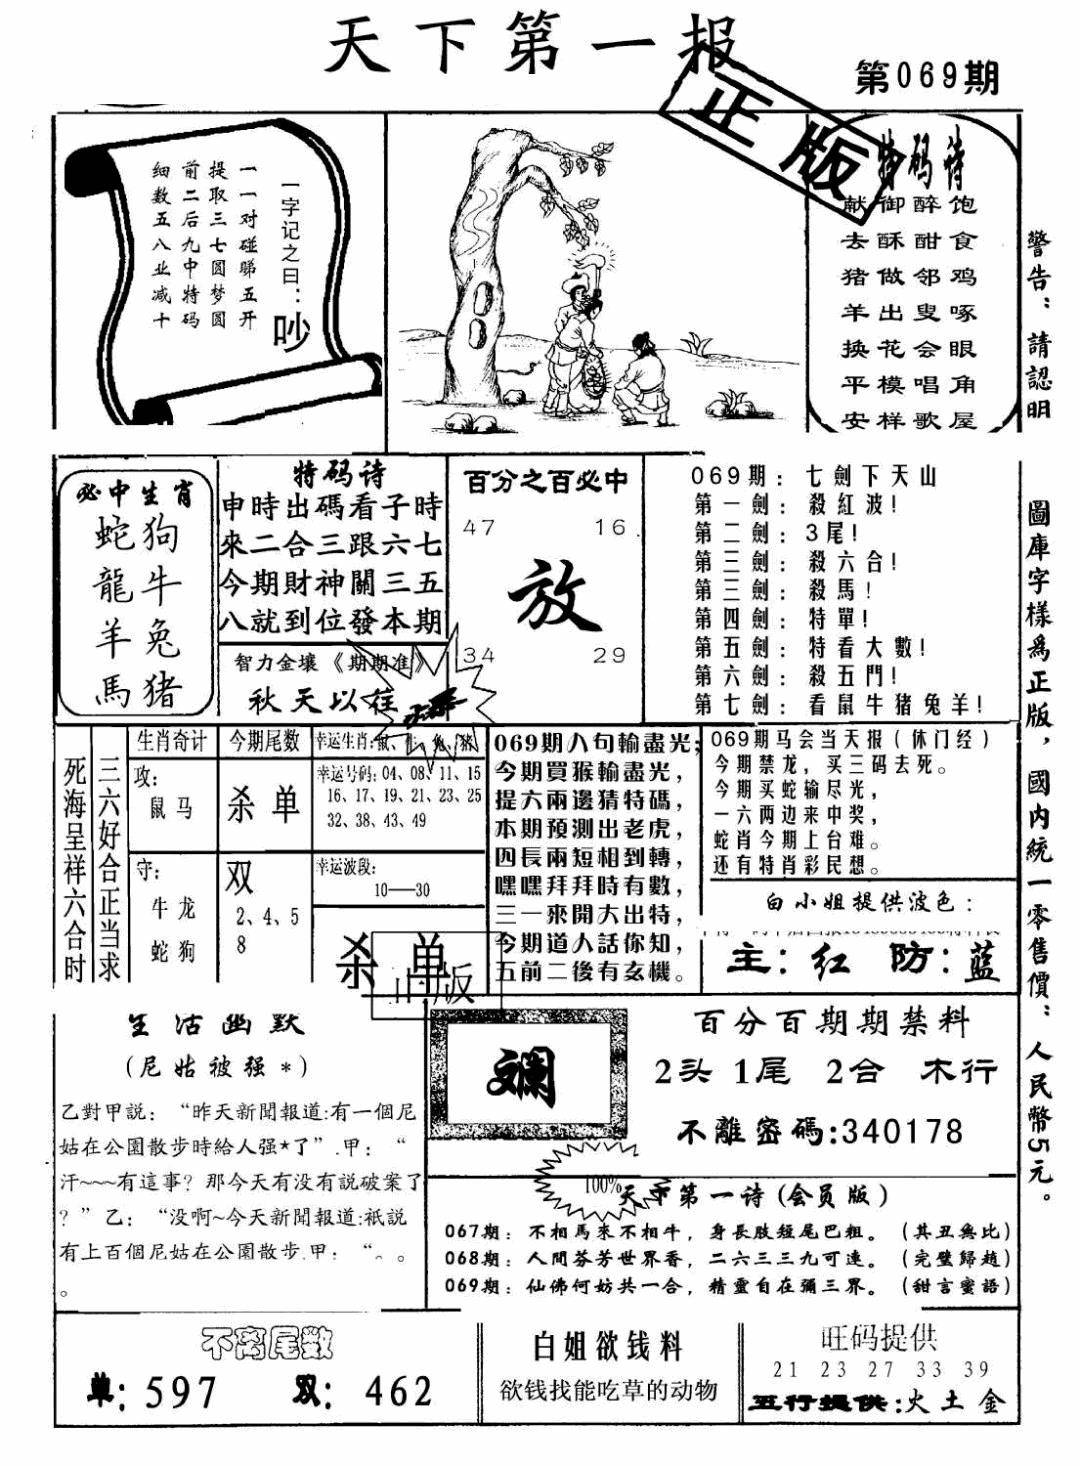 天下第一报
第069期
正版
一字记之曰：
吵
一一对碰睇五开
提取三七圆梦圆
前二后九中特码
细数五八业减十
特码诗
献御醉饱
去酥酣食
猪做邻鸡
羊出叟啄
换花会眼
平模唱角
安样歌屋
警告：請認明
圖庫字樣為正版，國内統一零售價：人民幣5元。
必中生肖
蛇狗
龍牛
羊兔
馬猪
特码诗
申時出碼看子時
來二合三跟六七
今期財神關三五
八就到位發本期
智力金壤《期期准》
秋天以往
百分之百必中
47 16
放
34 29
069期：七劍下天山
第一劍：殺紅波!
第二劍：3尾!
第三劍：殺六合!
第三劍：殺馬!
第四劍：特單!
第五劍：特看大數!
第六劍：殺五門!
第七劍：看鼠牛猪兔羊!
三六好合正当求
死海呈祥六合时
生肖奇计
攻：
鼠马
守：
牛龙
蛇狗
今期尾数
杀单
双
2、4、5
8
幸运生肖:鼠、牛、兔、猪
幸运号码: 04、08、11、15
16、17、19、21、23、25
32、38、43、49
幸运波段：
10——30
杀单
正版
069期八句輸盡光；
今期買猴輸盡光，
提六兩邊猜特碼，
本期預測出老虎，
四長兩短相到轉，
嘿嘿拜拜時有數，
三一來開大出特，
今期道人話你知，
五前二後有玄機。
069期马会当天报（休门经）
今期禁龙，买三码去死。
今期买蛇输尽光，
一六两边来中奖，
蛇肖今期上台难。
还有特肖彩民想。
白小姐提供波色：
主：红 防：蓝
生活幽默
（尼姑被强*）
乙對甲説：“昨天新聞報道:有一個尼
姑在公園散步時給人强*了”.甲：“
汗~~~有這事？那今天有没有説破案了
？”乙：“没啊~今天新聞報道:衹説
有上百個尼姑在公園散步.甲：“。。
。
斓
百分百期期禁料
2头 1尾 2合 木行
不離密碼:340178
100%
天下第一诗(会员版)
067期：不相馬來不相牛，身長肢短尾巴粗。（其丑無比）
068期：人間芬芳世界香，二六三三九可連。（完璧歸趙）
069期：仙佛何妨共一合，精靈自在彌三界。（甜言蜜語）
不离尾数
单：597 双：462
白姐欲钱料
欲钱找能吃草的动物
旺码提供
21 23 27 33 39
五行提供:火土金